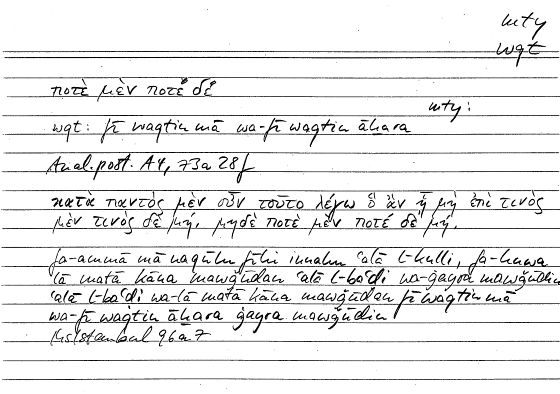 mty
wqt
ποτὲ μὲν ποτὲ δέ
mty:
wqt: fī waqtin mā wa-fī waqtin āḫara
Anal. post. A4, 73a 28f
κατὰ παντὸς μὲν οὖν τοῦτο λέγω ὃ ἂν ᾖ μὴ ἐπὶ τινὸς
μὲν τινὸς δὲ μή, μηδὲ ποτὲ μὲν ποτὲ δὲ μή.
fa-ammā mā naqūlu fīhi innahu ʿalā l-kulli, fa-huwa
lā matā kāna mawǧūdan ʿalā l-baʿḍi wa-ġayra mawǧūdin
ʿalā l-baʿḍi wa-lā matā kāna mawǧūdan fī waqtin mā
wa-fī waqtin āḫara ġayra mawǧūdin
Ms Istanbul 96a7